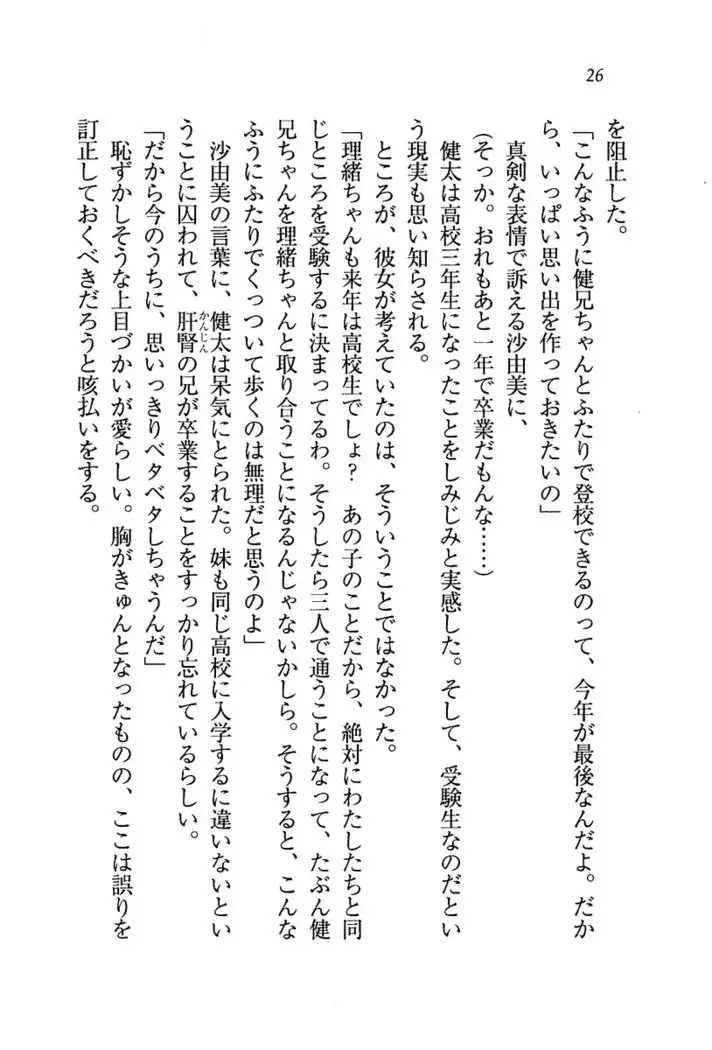 26
を阻止した。
「こんなふうに健兄ちゃんとふたりで登校できるのって、今年が最後なんだよ。だか
ら、いっぱい思い出を作っておきたいの」
真剣な表情で訴える沙由美に、
(そっか。おれもあと一年で卒業だもんな……)
健太は高校三年生になったことをしみじみと実感した。そして、受験生なのだとい
う現実も思い知らされる。
ところが、彼女が考えていたのは、そういうことではなかった。
「理緒ちゃんも来年は高校生でしょ? あの子のことだから、絶対にわたしたちと同
じところを受験するに決まってるわ。そうしたら三人で通うことになって、たぶん健
兄ちゃんを理緒ちゃんと取り合うことになるんじゃないかしら。そうすると、こんな
ふうにふたりでくっついて歩くのは無理だと思うのよ」
沙由美の言葉に、健太は呆気にとられた。妹も同じ高校に入学するに違いないとい
うことに囚われて、肝腎の兄が卒業することをすっかり忘れているらしい。
かんじん
「だから今のうちに、思いっきりベタベタしちゃうんだ」
恥ずかしそうな上目づかいが愛らしい。胸がきゅんとなったものの、ここは誤りを
訂正しておくべきだろうと咳払いをする。